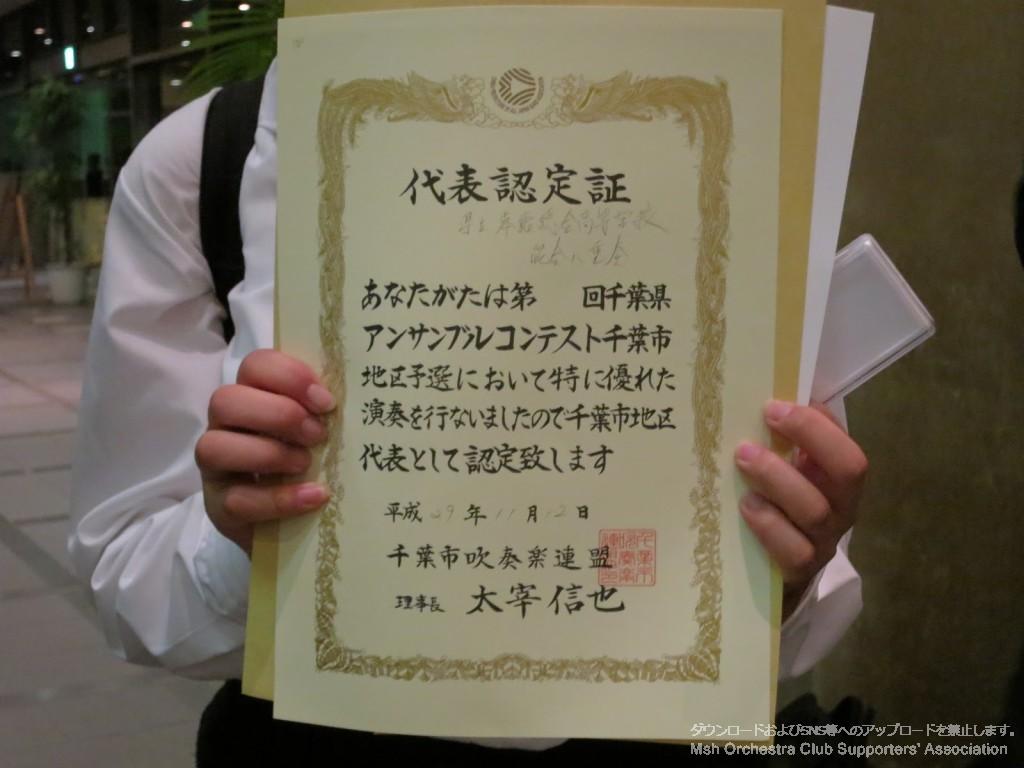 代表認定証
県立幕張総合高等学校
混合八重奏
あなたがたは第 回千葉県
アンサンブルコンテスト千葉市
地区予選において特に優れた
演奏を行ないましたので千葉市地区
代表として認定致します
平成 29 年 11 月 12 日
千葉市吹奏楽連盟
理事長 太宰信也
ダウンロードおよびSNS等へのアップロードを禁止します。
Msh Orchestra Club Supporters' Association